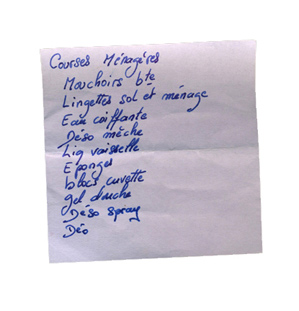 Courses Ménagères
Mouchoirs bte
Lingettes sol et ménage
Eau coiffante
Déso mèche
Liq vaisselle
Eponges
blocs cuvette
gel douche
Déso spray
Déo